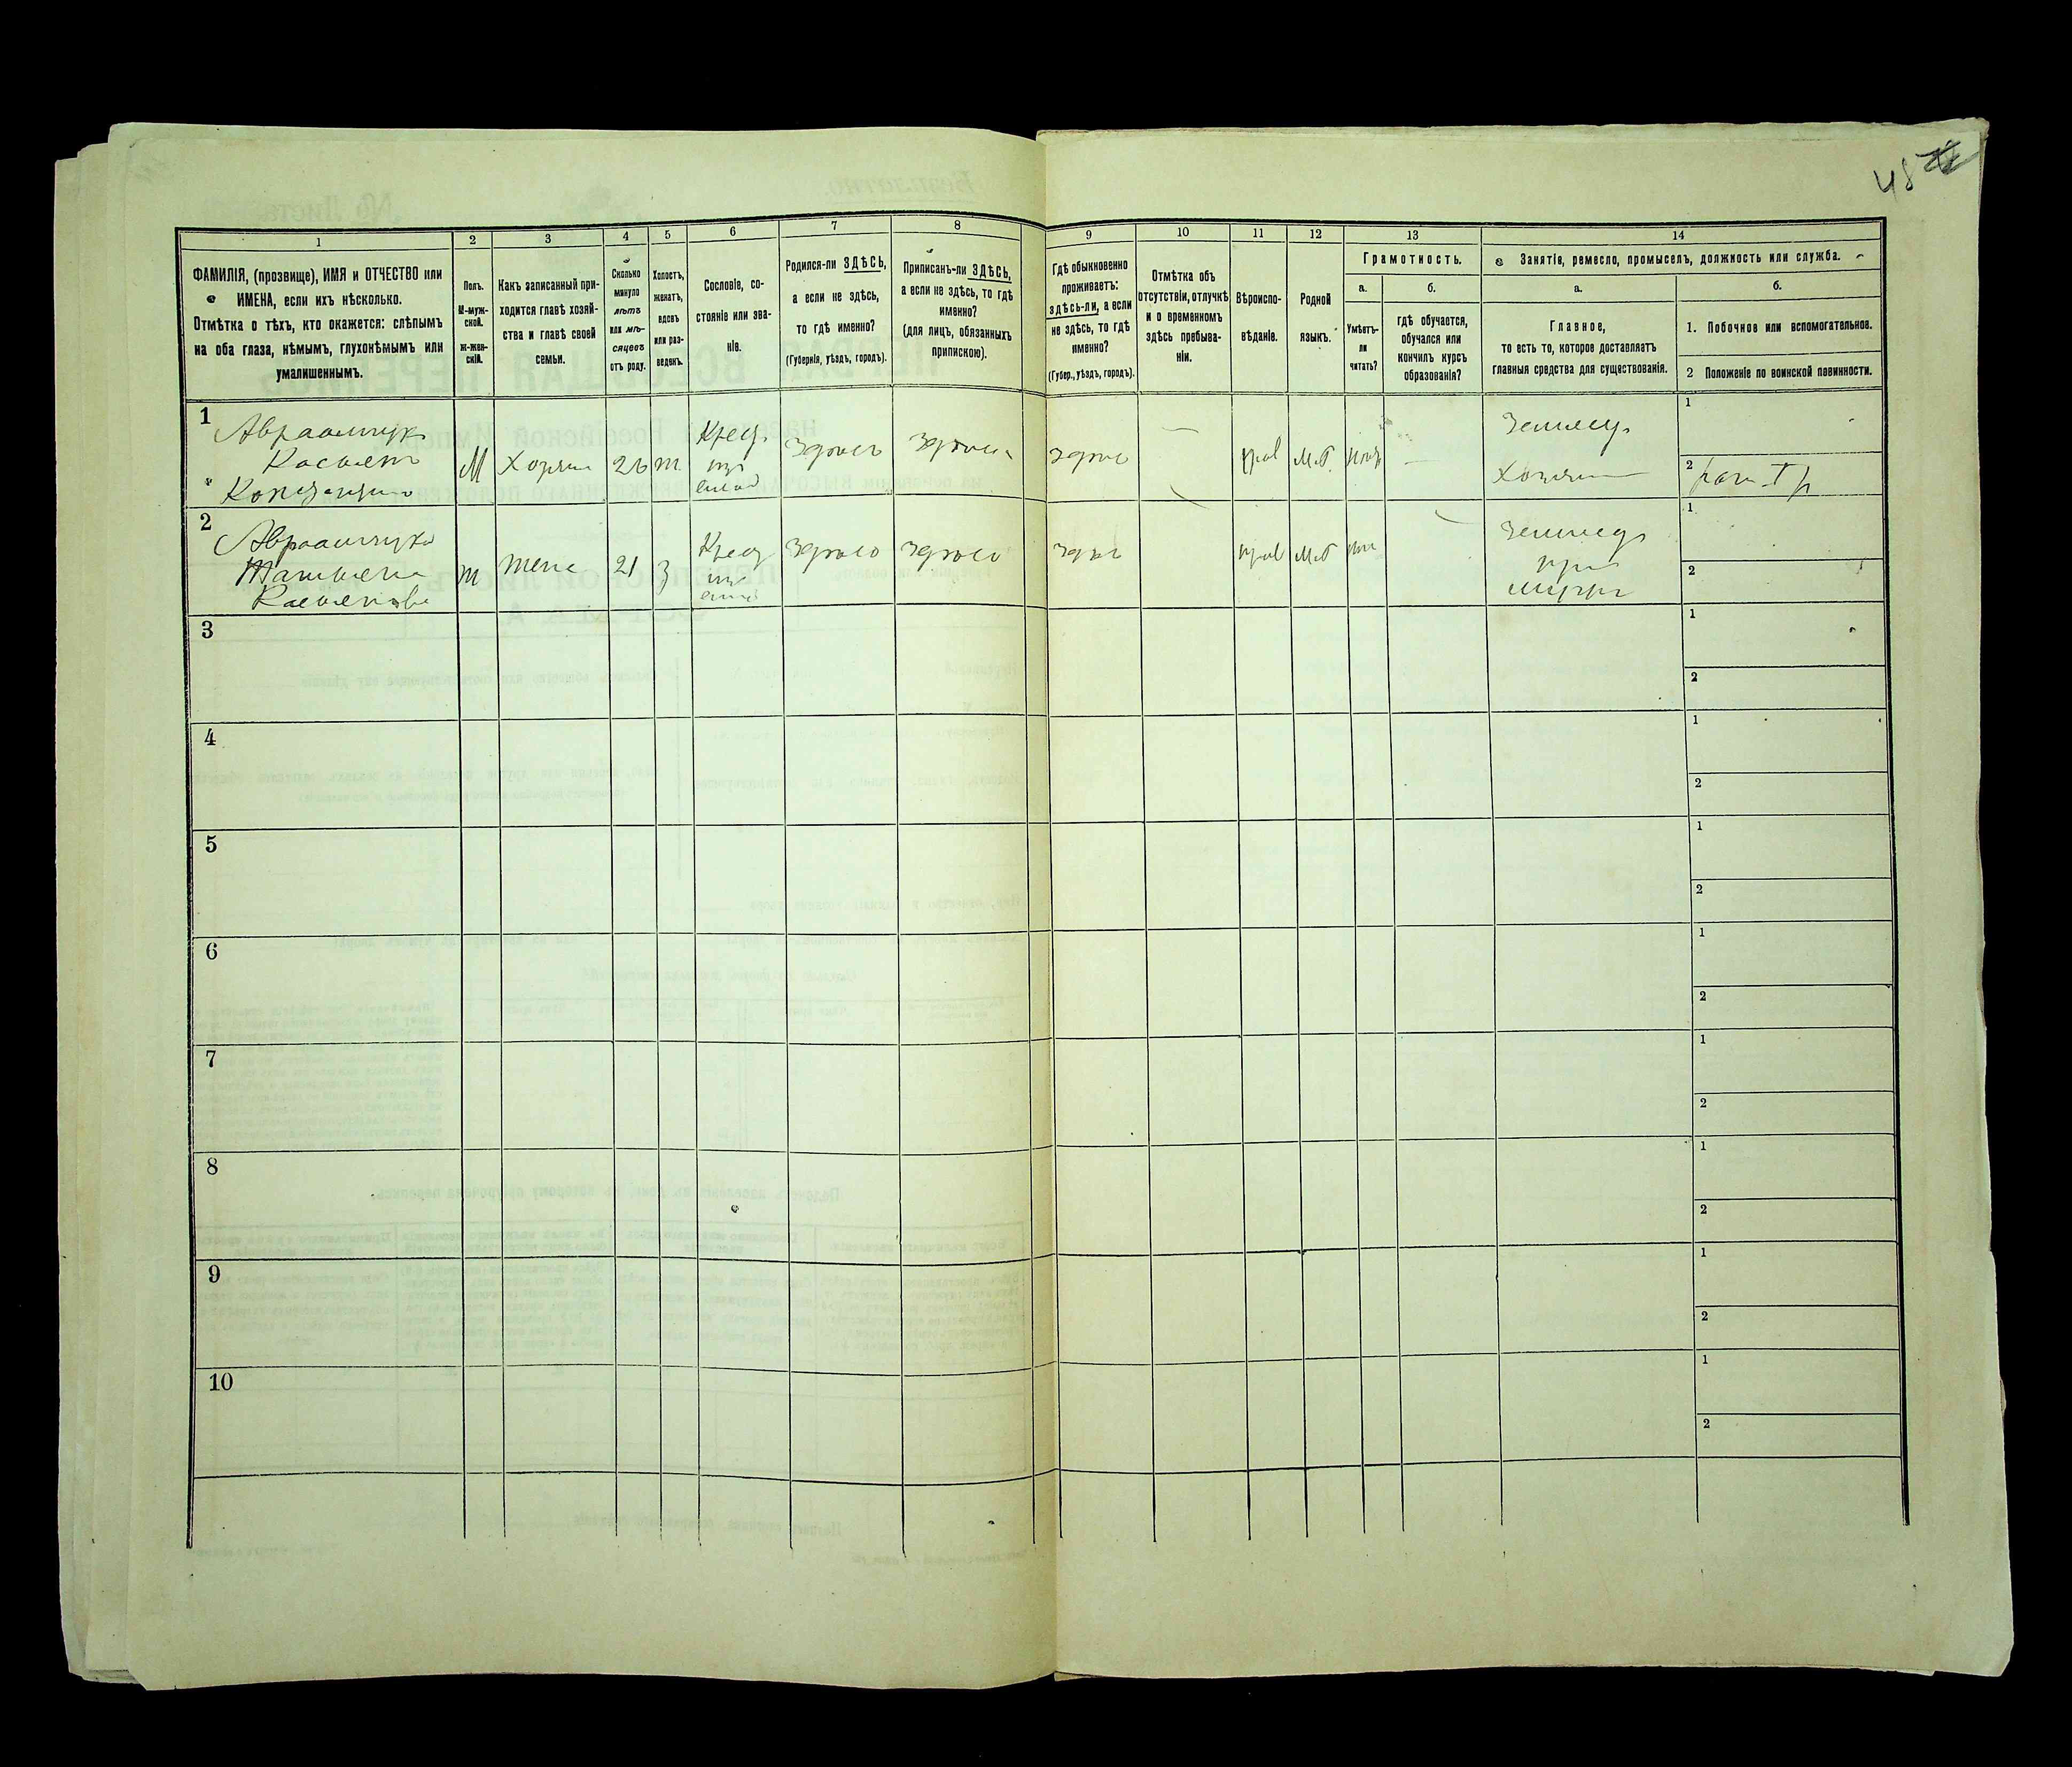 48
1
2
3
4
5
6
7
8
9
10
11
12
13
14
ФАМИЛІЯ, (прозвище), ИМЯ и ОТЧЕСТВО или
ИМЕНА, если ихъ нѣсколько.
Отмѣтка о тѣхъ, кто окажется: слѣпымъ
на оба глаза, нѣмымъ, глухонѣмымъ или
умалишеннымъ.
Полъ.
М-муж-
ской.
ж-жен-
скій.
Какъ записанный при-
ходится главѣ хозяй-
ства и главѣ своей
семьи.
Сколько
минуло
лѣтъ
или мѣ-
сяцевъ
отъ роду.
Холостъ,
женатъ,
вдовъ
или раз-
веденъ.
Сословіе, со-
стояніе или зва-
ніе.
Родился-ли ЗДѢСЬ,
а если не здѣсь,
то гдѣ именно?
(Губернія, уѣздъ, городъ).
Приписанъ-ли ЗДѢСЬ,
а если не здѣсь, то гдѣ
именно?
(для лицъ, обязанныхъ
припискою).
Гдѣ обыкновенно
проживаетъ:
здѣсь-ли, а если
не здѣсь, то гдѣ
именно?
(Губер., уѣздъ, городъ).
Отмѣтка объ
отсутствіи, отлучкѣ
и о временномъ
здѣсь пребыва-
ніи.
Вѣроиспо-
вѣданіе.
Родной
языкъ.
Грамотность.
а.
Умѣетъ-
ли
читать?
б.
гдѣ обучается,
обучался или
кончилъ курсъ
образованія?
Занятіе, ремесло, промыселъ, должность или служба.
а.
Главное,
то есть то, которое доставляетъ
главныя средства для существованія.
б.
1. Побочное или вспомогательное.
2 Положеніе по воинской повинности.
1
Авраамчукъ
М
26
ж
Крес
здѣсь
здѣсь
здѣсь
прав
Мал
Землед
Хозяин
1
2
2
Авраамчукъ
ж
жена
21
З
Крес
здѣсь
здѣсь
здѣсь
прав
Мал
Землед
при
мужѣ
1
2
3
1
2
4
1
2
5
1
2
6
1
2
7
1
2
8
1
2
9
1
2
10
1
2